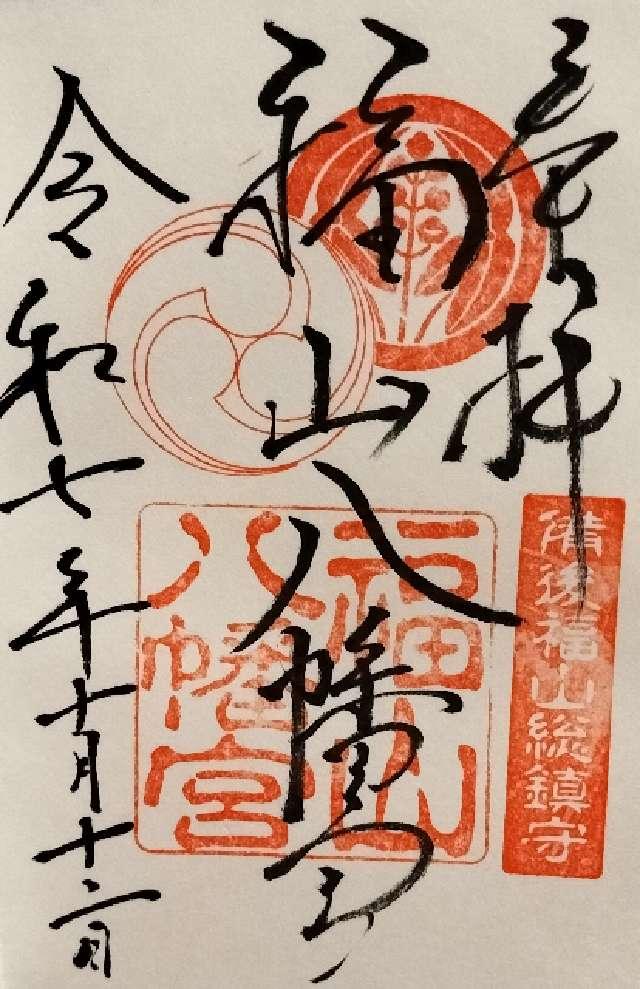 奉拝
備後福山総鎮守
福山八幡宮
福山
八幡宮
令和七年十月十二日